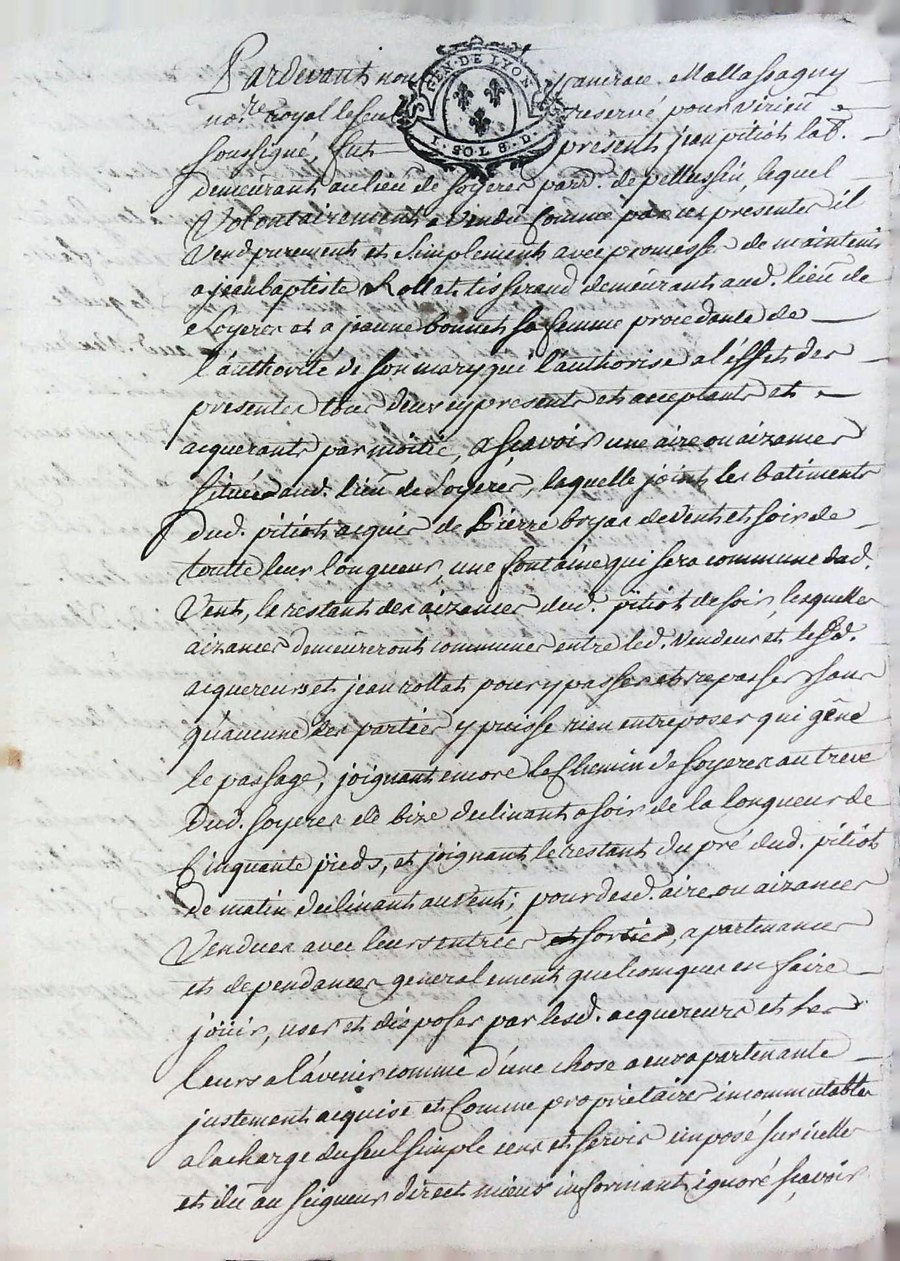 Pardevant nous camcrace Mallassagny
GEN. DE LYON
1. SOL 8. D.
no.re royal le seul reservé pour virieu
soussigné, fut present jean pitiot lab.r
demeurant au lieu de soyeres par.d de pellussin, lequel
Volontairement a vendu comme par ces presentes il
Vend purement et simplement avec promesse de maintenir
a jean baptiste Rollat tisserand demeurant aud. lieu de
soyeres et a jeanne bonnet sa femme procedante de
l'authorité de son mary qui l'authorise a l'effet des
presentes tous deux cy presents et acceptants et
acquerants par moitié, a sçavoir une aire ou aizances
situées aud. lieu de soyeres, laquelle joint les batiments
dud. pitiot acquis de Pierre boyas de vent et soir de
toutte leur longueur, une fontaine qui sera commune dud.
Vent, le restant des aizances dud. pitiot de soir, lesquelles
aizances demeureront communes entre led. vendeur et lesd.
acquereurs et jean rollat pour y passer et repasser sans
qu'aucune des parties y puisse rien entreposer qui gêne
le passage, joignant encore le chemin de soyeres au treve
dud. soyeres de bize declinant a soir de la longueur de
Cinquante pieds, et joignant le restant du pré dud. pitiot
de matin declinant au vent; pour desd. aire ou aizances
Vendues avec leurs entrées et sorties, apartenances
et dependances generalement quelconques en faire
joüir, user et disposer par lesd. acquereurs et les
leurs a l'avenir comme d'une chose a eux apartenante
justement acquise et comme proprietaires incommutables
a la charge du seul simple cens et servis imposé sur icelle
et dû au seigneur direct mieux informant, ignoré sçavoir